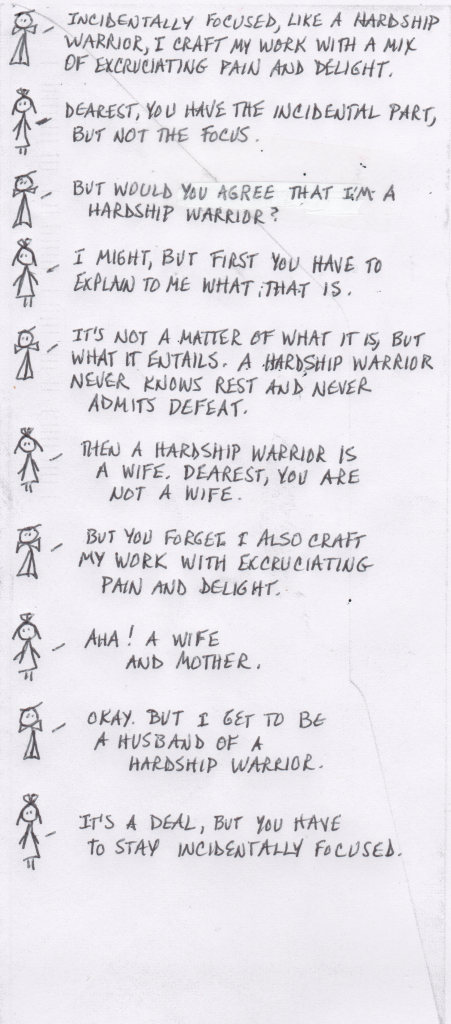 INCIDENTALLY FOCUSED, LIKE A HARDSHIP
WARRIOR, I CRAFT MY WORK WITH A MIX
OF EXCRUCIATING PAIN AND DELIGHT.
DEAREST, YOU HAVE THE INCIDENTAL PART,
BUT NOT THE FOCUS.
BUT WOULD YOU AGREE THAT I'M A
HARDSHIP WARRIOR?
I MIGHT, BUT FIRST YOU HAVE TO
EXPLAIN TO ME WHAT THAT IS.
IT'S NOT A MATTER OF WHAT IT IS, BUT
WHAT IT ENTAILS. A HARDSHIP WARRIOR
NEVER KNOWS REST AND NEVER
ADMITS DEFEAT.
THEN A HARDSHIP WARRIOR IS
A WIFE. DEAREST, YOU ARE
NOT A WIFE.
BUT YOU FORGET. I ALSO CRAFT
MY WORK WITH EXCRUCIATING
PAIN AND DELIGHT.
AHA! A WIFE
AND MOTHER.
OKAY. BUT I GET TO BE
A HUSBAND OF A
HARDSHIP WARRIOR.
IT'S A DEAL, BUT YOU HAVE
TO STAY INCIDENTALLY FOCUSED.